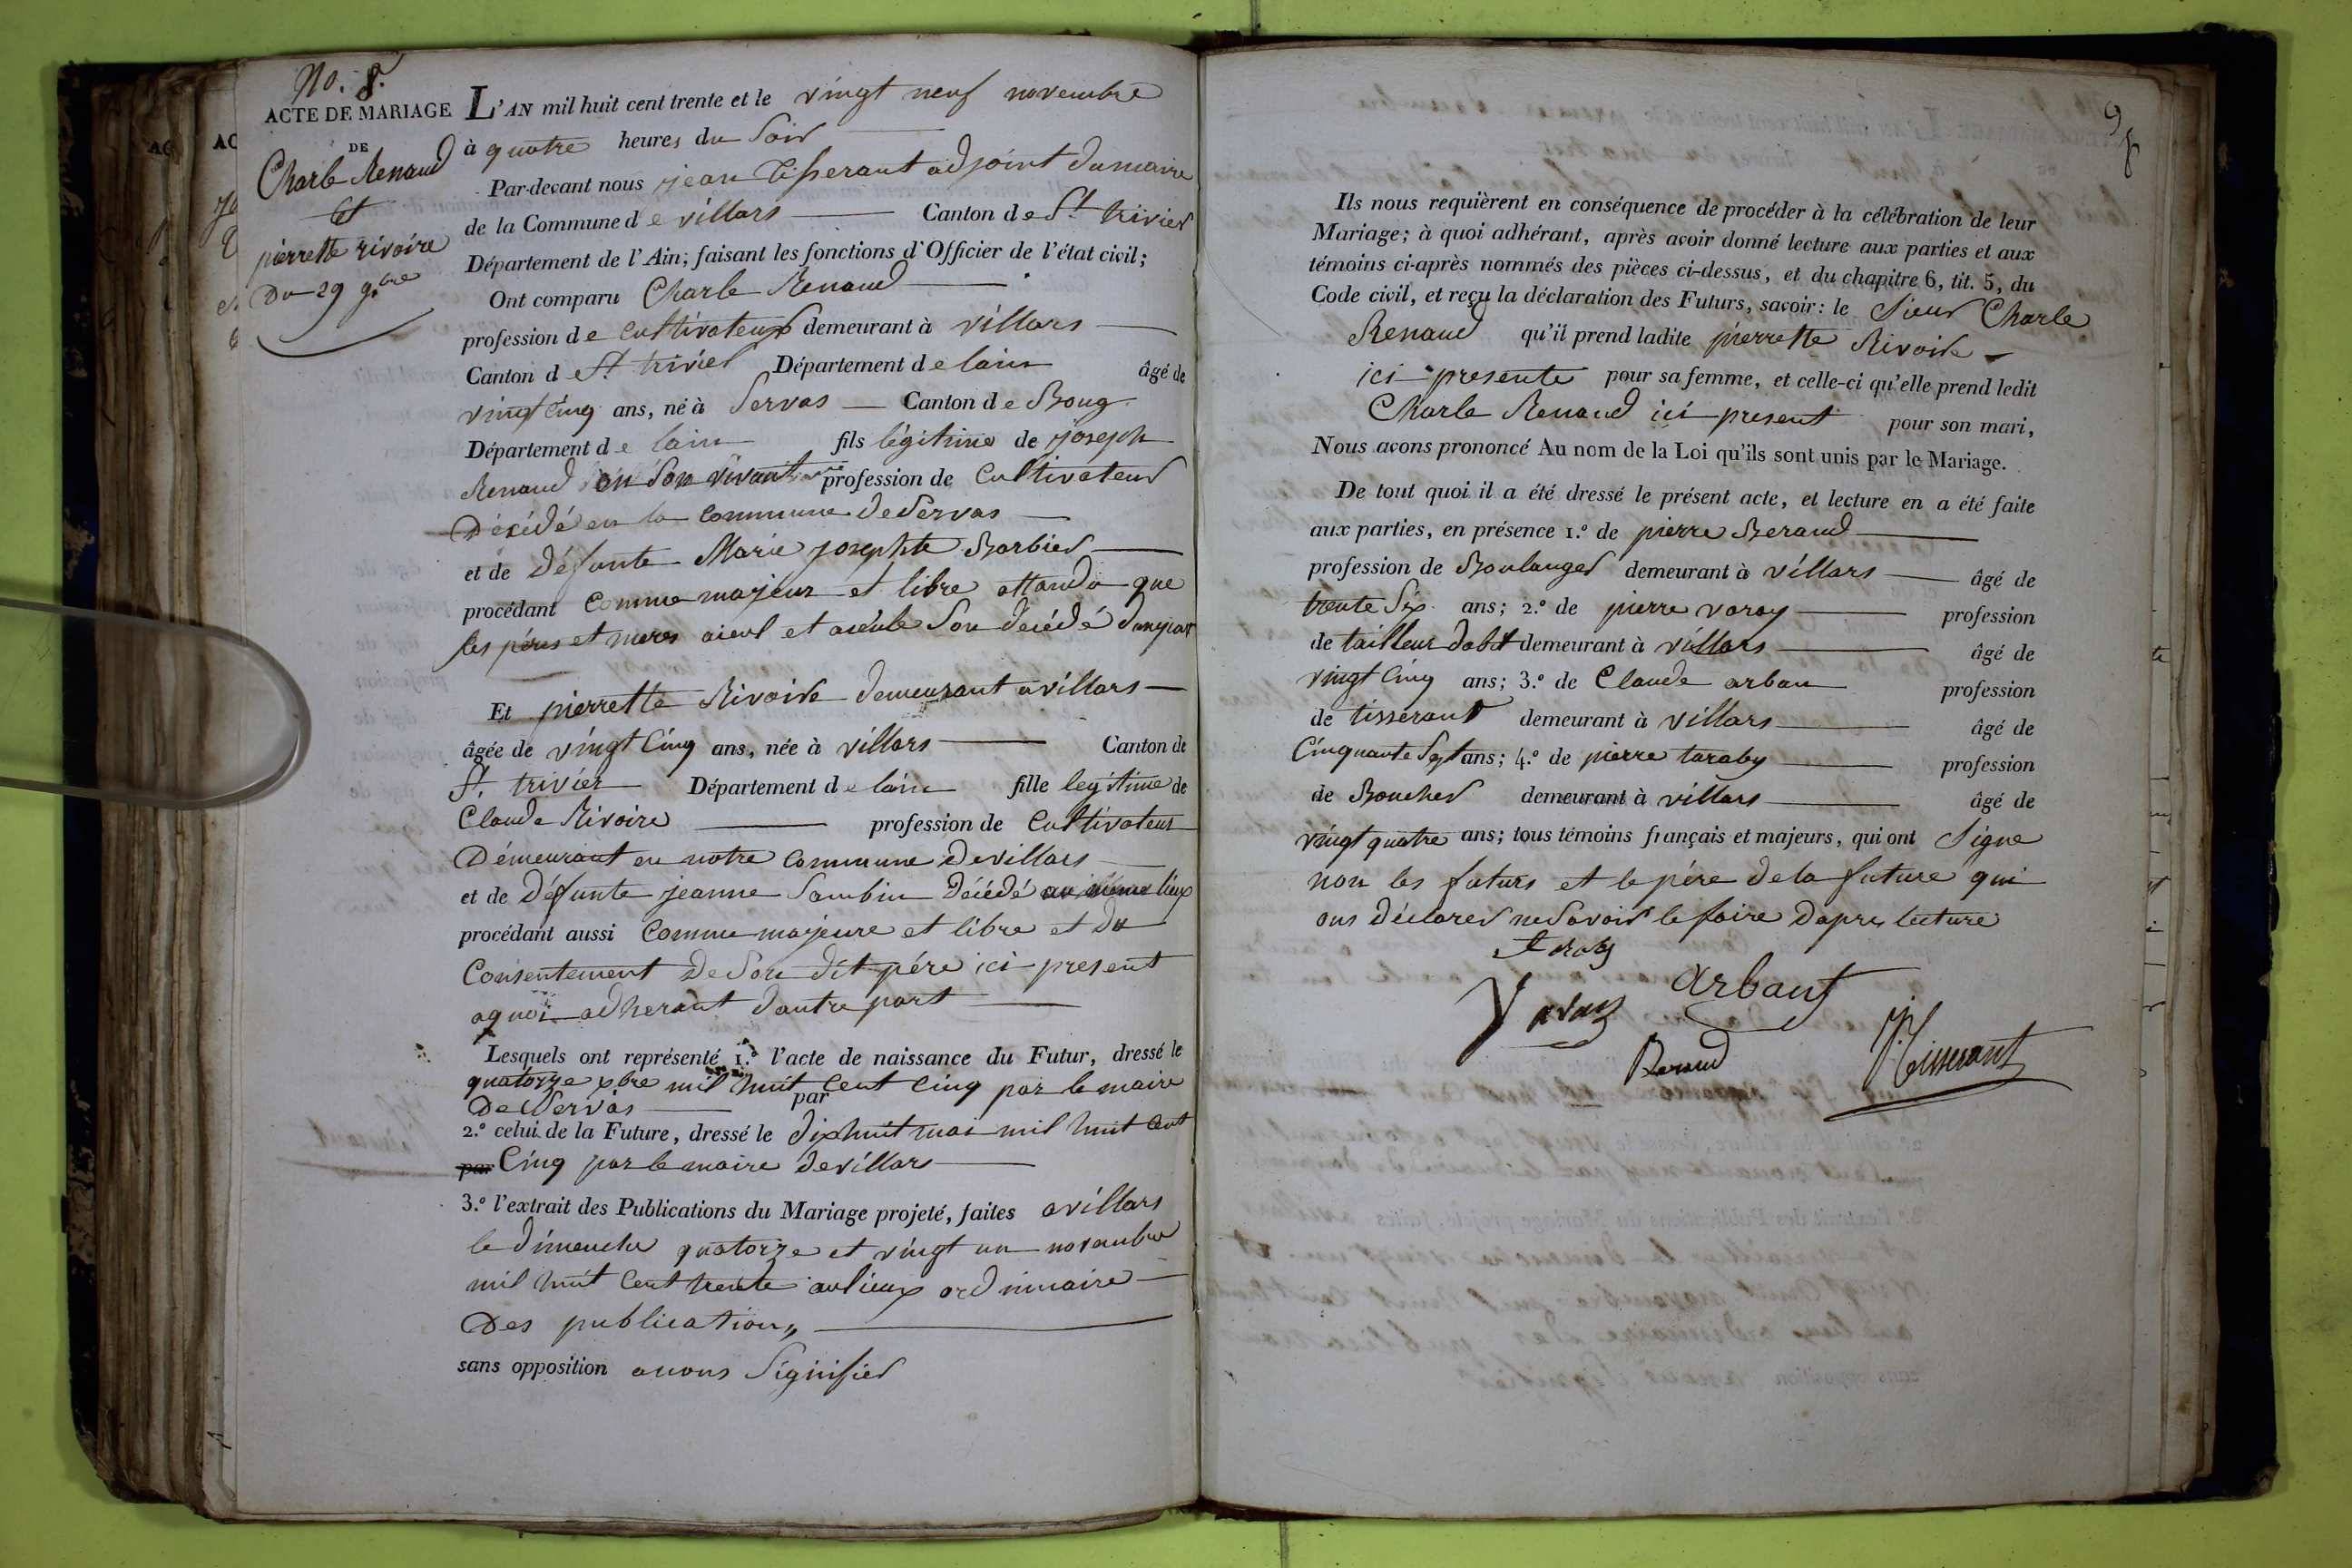 No. 8.
ACTE DE MARIAGE
DE
Charle Renaud
Et
pierrette rivoire
Du 29 9.bre
L'AN mil huit cent trente et le vingt neuf novembre
à quatre heures du Soir
Par-devant nous jean tisserant adjoint du maire
de la Commune de villars Canton de St. trivier
Département de l'Ain; faisant les fonctions d'Officier de l'état civil;
Ont comparu Charle Renaud
profession de Cultivateur demeurant à villars
Canton d St. trivier Département de lain âgé de
vingt Cinq ans, né à Servas Canton de Bourg
Département de lain fils légitime de joseph
Renaud en Son vivant profession de Cultivateur
Décédé en la Commune de Servas
et de défunte Marie josephte Barbier
procédant Comme majeur et libre attandu que
ses péres et meres aieul et aieule Son décédé dunepart
Et pierrette Rivoire demeurant a villars
âgée de vingt Cinq ans, née à villars Canton de
St. trivier Département de lain fille legitime de
Claude Rivoire profession de Cultivateur
Démeurant en notre Commune de villars
et de défunte jeanne Sambin Décédé au même lieux
procédant aussi Comme majeure et libre et du
Consentement de Son dit pére ici present
aquoi adherant dautre part
Lesquels ont représenté 1.º l'acte de naissance du Futur, dressé le
quatorze xbre mil huit Cent Cinq par le maire
De Servas par
2.º celui de la Future, dressé le dixhuit mai mil huit Cent
par Cinq par le maire de villars
3.º l'extrait des Publications du Mariage projeté, faites a villars
le dimenche quatorze et vingt un novembre
mil huit Cent trente aulieux ordinnaire
Des publications
sans opposition a nous Signifier
98
Ils nous requièrent en conséquence de procéder à la célébration de leur
Mariage; à quoi adhérant, après avoir donné lecture aux parties et aux
témoins ci-après nommés des pièces ci-dessus, et du chapitre 6, tit. 5, du
Code civil, et reçu la déclaration des Futurs, savoir: le Sieur Charle
Renaud qu'il prend ladite pierrette Rivoire
ici presente pour sa femme, et celle-ci qu'elle prend ledit
Charle Renaud ici present pour son mari,
Nous avons prononcé Au nom de la Loi qu'ils sont unis par le Mariage.
De tout quoi il a été dressé le présent acte, et lecture en a été faite
aux parties, en présence 1.º de pierre Beraud
profession de Boulanger demeurant à villars âgé de
trente Six ans; 2.º de pierre varay profession
de tailleur dabit demeurant à villars âgé de
vingt Cinq ans; 3.º de Claude arban profession
de tisserant demeurant à villars âgé de
Cinquante Sept ans; 4.º de pierre taraby profession
de Boucher demeurant à villars âgé de
vingt quatre ans; tous témoins français et majeurs, qui ont Signe
non les futurs et le pére de la future qui
ons déclarer ne Savoir le faire dapres lecture
Arbant
Beraud
Tisserant